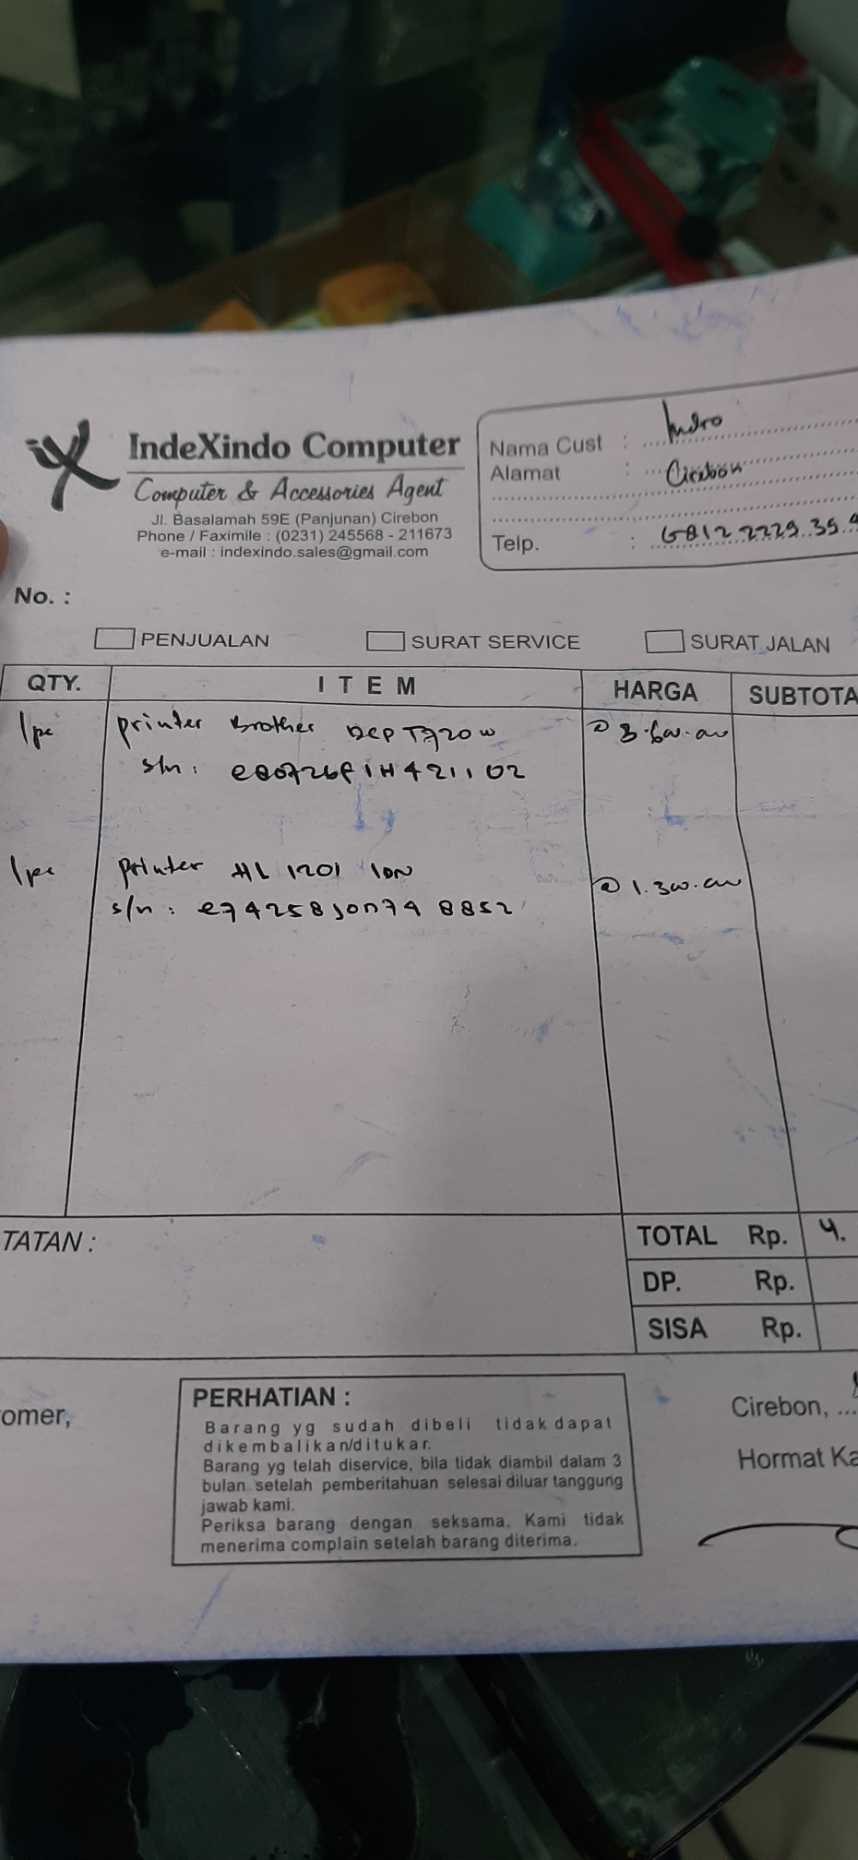 IndeXindo Computer
Computer & Accessories Agent
Jl. Basalamah 59E (Panjunan) Cirebon
Phone / Faximile : (0231) 245568 - 211673
e-mail : indexindo.sales@gmail.com
Nama Cust : Indro
Alamat : Cirebon
Telp. : 0812 2229 39
No. :
PENJUALAN SURAT SERVICE SURAT JALAN
QTY. ITEM HARGA SUBTOTA
1pc printer Brother DCP T720W @ 3.600.000
s/n :
1pc printer HL 1201 @ 1.300.000
s/n :
TATAN :
TOTAL Rp. 4.
DP. Rp.
SISA Rp.
omer,
PERHATIAN :
Barang yg sudah dibeli tidak dapat
dikembalikan/ditukar.
Barang yg telah diservice, bila tidak diambil dalam 3
bulan setelah pemberitahuan selesai diluar tanggung
jawab kami.
Periksa barang dengan seksama. Kami tidak
menerima complain setelah barang diterima.
Cirebon, ...
Hormat Ka